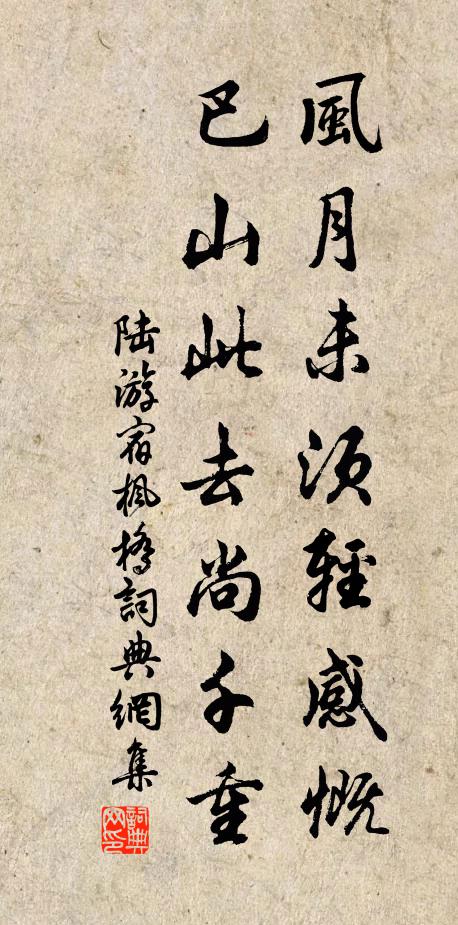 風月未須輕感慨
巴山此去尚千重
陸游宿楓橋詞典網集
詞典網印